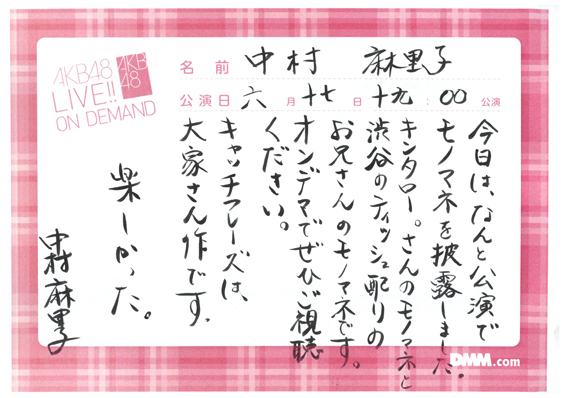 AKB48
LIVE!!
ON DEMAND
AKB
48
名前 中村 麻里子
公演日 六月 十七日 十九:00 公演
今日は、なんと公演で
モノマネを披露しました。
キンタロー。さんのモノマネと
渋谷のティッシュ配りの
お兄さんのモノマネです。
オンデマでぜひご視聴
ください。
キャッチフレーズは、
大家さん作です.
楽しかった。
中村麻里子
DMM.com